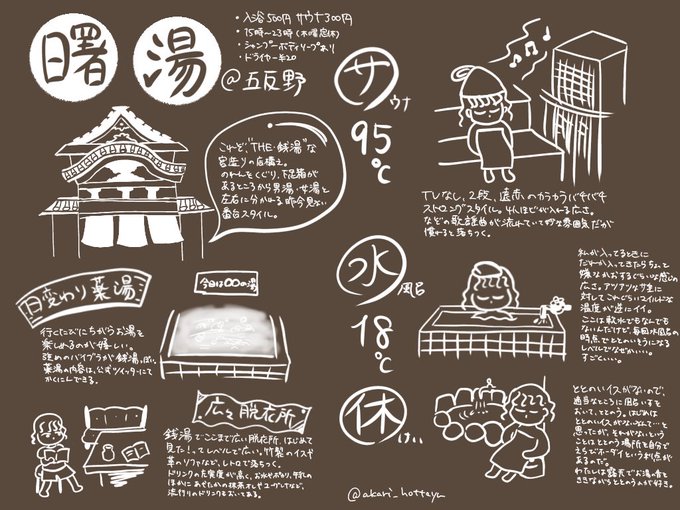 曙湯
・入浴500円 サウナ300円
・15時〜23時(木曜定休)
・シャンプーボディソープあり
・ドライヤー¥20
@五反野
これぞ、"THE・銭湯"な
宮造りの店構え。
のれんをくぐり、下足箱が
あるところから男湯・女湯と
左右に分かれる昨今見ない
番台スタイル。
サウナ
95℃
TVなし、2段、遠赤のカラカラバチバチ
ストロングスタイル。4人ほどが入れる広さ。
なぞの歌謡曲が流れていて妙な雰囲気だが
慣れると落ちつく。
日変わり薬湯
今日は〇〇の湯
行くたびにちがうお湯を
楽しめるのが嬉しい。
強めのバイブラが銭湯っぽい。
薬湯の内容は、公式ツイッターにて
かくにんできる。
水風呂
18℃
私が入ってるときに
だれか入ってきたらちょっと
嫌なかおするぐらいな感じの
広さ。アツアツなサ室に
対してこれぐらいマイルドな
温度が逆にイイ。
ここは軟水でもなんでも
ないんだけど、毎回水風呂の
時点でととのいそうになる
レベルでなぜかいい。
すごくいい。
広々脱衣所
銭湯でここまで広い脱衣所、はじめて
見た!ってレベルで広い。竹製のイスや
革のソファなど、レトロで落ちつく。
ドリンクの充実度が高く、お水やポカリ、牛乳の
ほかにあやたかの抹茶オレやヨーグルトなど、
流行りのドリンクもおいてある。
休けい
ととのいイスがないので、
適当なところに風呂いすを
おいて、ととのう。はじめは
ととのいイスがないなんて…と
思ったが、それがないという
ことはととのう場所を自分で
えらびホーダイという利点が
あるのだ。
わたしは露天でお湯の音を
ききながらととのうのが好き。
@akari_hottayu